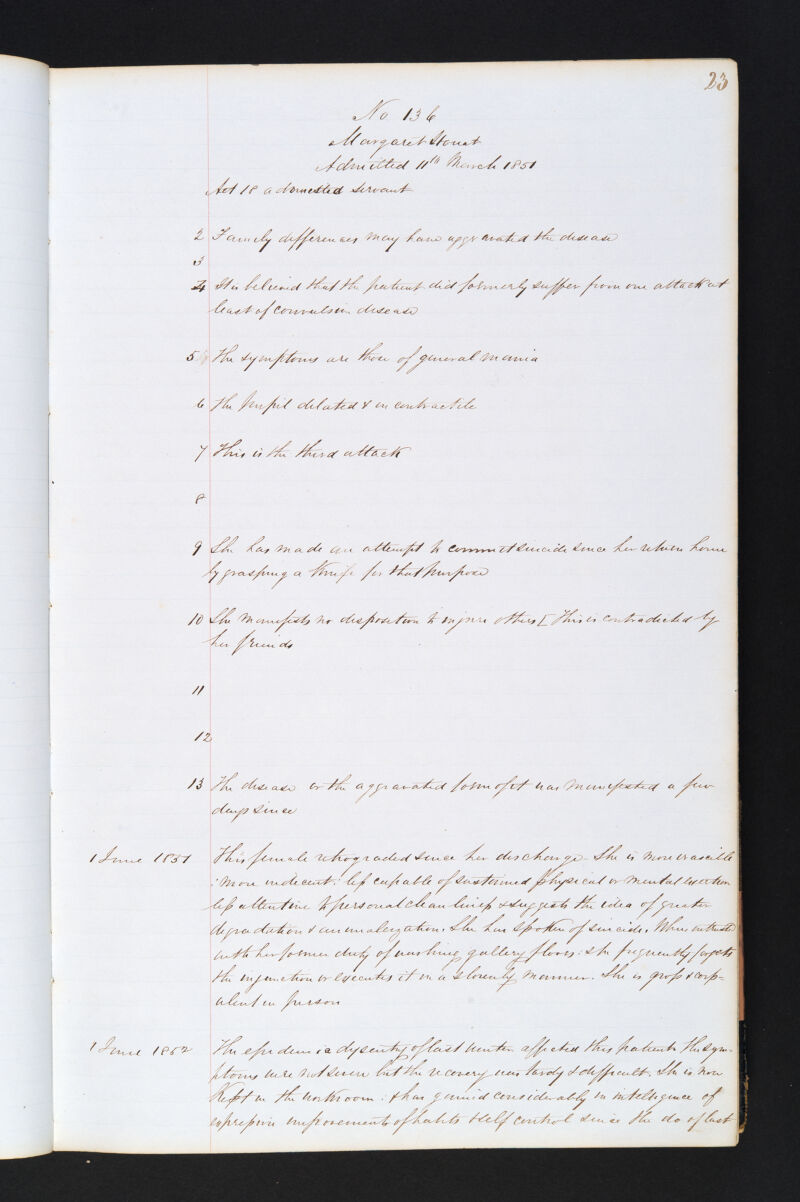 23
No 136
Margaret Stouat
Admitted 11th March 1851
Aet 18 a domestic servant
2 Family differences may have aggravated the disease
3
4 It is believed that the patient did formerly suffer from one attack at
least of convulsive disease
5 The symptoms are those of general mania
6 The pupil dilated & in contractile
7 This is the third attack
8
9 She has made an attempt to commit suicide since her return home
by grasping a knife for that purpose
10 She manifests no disposition to injure others [ This is contradicted by
her friends
11
12
13 The disease or the aggravated form of it was manifested a few
days since
1 June 1851 This female retrograded since her discharge. She is more irascible
: more indecent: less capable of sustained physical or mental exertion
less attentive to personal cleanliness & suggests the idea of greater
degradation & animalization. She has spoken of suicide. When intrusted
with her former duty of washing gallery floors: she frequently forgets
the injunction or executes it in a slovenly manner. She is gross & corp-
ulent in person
1 June 1852 The epidemic dysentery of last winter affected this patient. The sym-
ptoms were not severe but the recovery was tardy & difficult. She is now
kept in the workroom: & has gained considerably in intelligence of
expression improvement of habits & self control since the do of last